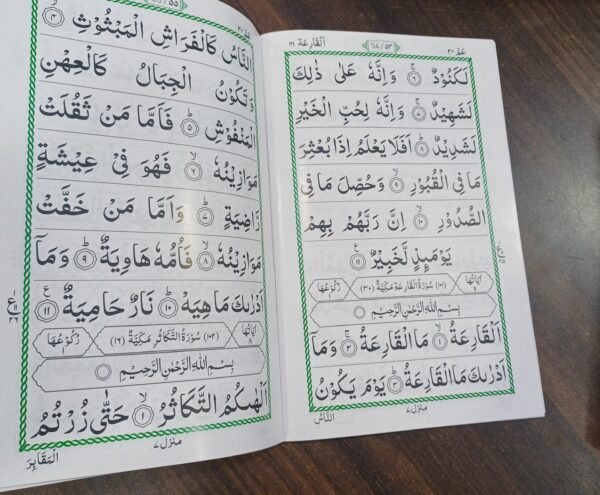 اَلْقَارِعَة ١٠١
عَمَّ ٣٠
لَكَنُوْدٌ ۚ﴿٦﴾ وَاِنَّهٗ عَلٰى ذٰلِكَ
لَشَهِيْدٌ ۚ﴿٧﴾ وَاِنَّهٗ لِحُبِّ الْخَيْرِ
لَشَدِيْدٌ ؕ﴿٨﴾ اَفَلَا يَعْلَمُ اِذَا بُعْثِرَ
مَا فِى الْقُبُوْرِ ۙ﴿٩﴾ وَحُصِّلَ مَا فِى
الصُّدُوْرِ ۙ﴿١٠﴾ اِنَّ رَبَّهُمْ بِهِمْ
يَوْمَىِٕذٍ لَّخَبِيْرٌ ﴿١١﴾
(١٠١) سُوْرَةُ الْقَارِعَةِ مَكِّيَّةٌ (٣٠) رُكُوْعُهَا
بِسْمِ اللهِ الرَّحْمٰنِ الرَّحِيْمِ
اَلْقَارِعَةُ ۙ﴿١﴾ مَا الْقَارِعَةُ ۚ﴿٢﴾ وَمَاۤ
اَدْرٰىكَ مَا الْقَارِعَةُ ؕ﴿٣﴾ يَوْمَ يَكُوْنُ
منزل ٧
النَّاسُ
عَمَّ ٣٠
النَّاسُ كَالْفَرَاشِ الْمَبْثُوْثِ ۙ﴿٤﴾
وَتَكُوْنُ الْجِبَالُ كَالْعِهْنِ
الْمَنْفُوْشِ ؕ﴿٥﴾ فَاَمَّا مَنْ ثَقُلَتْ
مَوَازِيْنُهٗ ۙ﴿٦﴾ فَهُوَ فِىْ عِيْشَةٍ
رَّاضِيَةٍ ؕ﴿٧﴾ وَاَمَّا مَنْ خَفَّتْ
مَوَازِيْنُهٗ ۙ﴿٨﴾ فَاُمُّهٗ هَاوِيَةٌ ؕ﴿٩﴾ وَمَاۤ
اَدْرٰىكَ مَا هِيَهْ ؕ﴿١٠﴾ نَارٌ حَامِيَةٌ ﴿١١﴾
اٰيَاتُهَا ٨ (١٠٢) سُوْرَةُ التَّكَاثُرِ مَكِّيَّةٌ (١٦) رُكُوْعُهَا
بِسْمِ اللهِ الرَّحْمٰنِ الرَّحِيْمِ
اَلْهٰىكُمُ التَّكَاثُرُ ۙ﴿١﴾ حَتّٰى زُرْتُمُ
منزل ٧
الْمَقَابِرَ